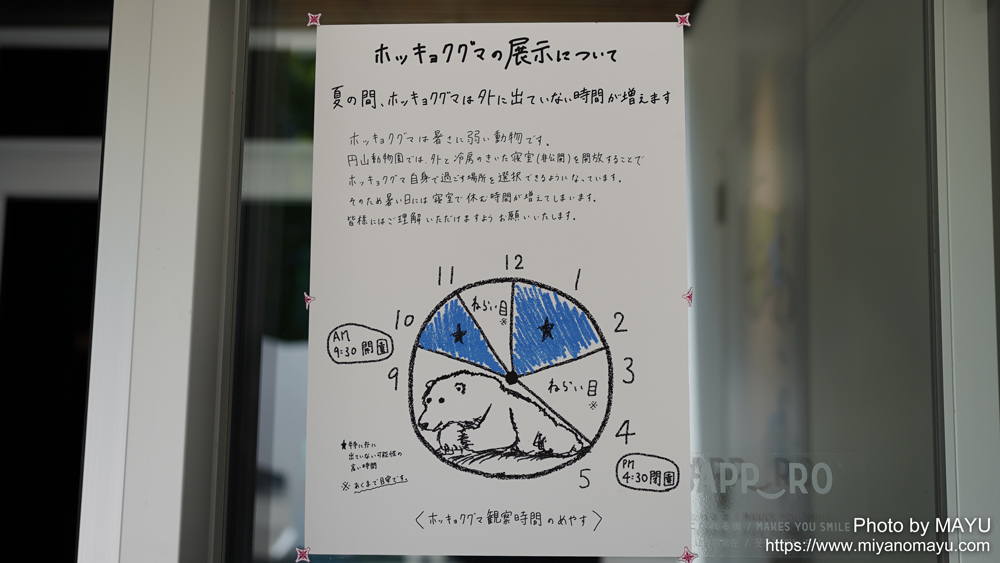 ホッキョクグマの展示について
夏の間、ホッキョクグマは外に出ていない時間が増えます
ホッキョクグマは暑さに弱い動物です。
円山動物園では、外と冷房のきいた寝室(非公開)を開放することで
ホッキョクグマ自身で過ごす場所を選択できるようになっています。
そのため暑い日には寝室で休む時間が増えてしまいます。
皆様にはご理解いただけますようお願いいたします。
12
11
1
ねらい目
※
10
★
★
2
AM
9:30 開園
9
3
ねらい目
※
4
5
PM
4:30 閉園
★特に外に
出ていない可能性の
高い時間
※あくまで目安です。
〈ホッキョクグマ観察時間のめやす〉
SAPP_RO
/ MAKES YOU SMILE
Photo by MAYU
https://www.miyanomayu.com